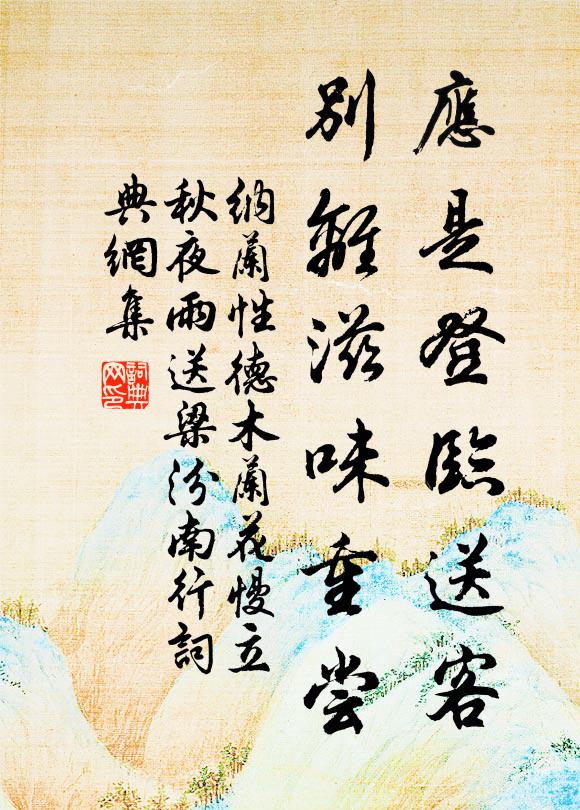 應是登臨送客
別離滋味重嘗
納蘭性德木蘭花慢立
秋夜雨送梁汾南行詞
典網集
詞典
网印